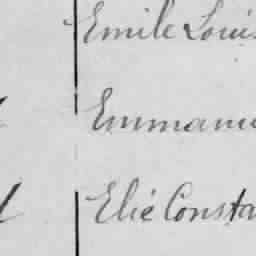 Emile Louis
Emmanu
Elie Consta